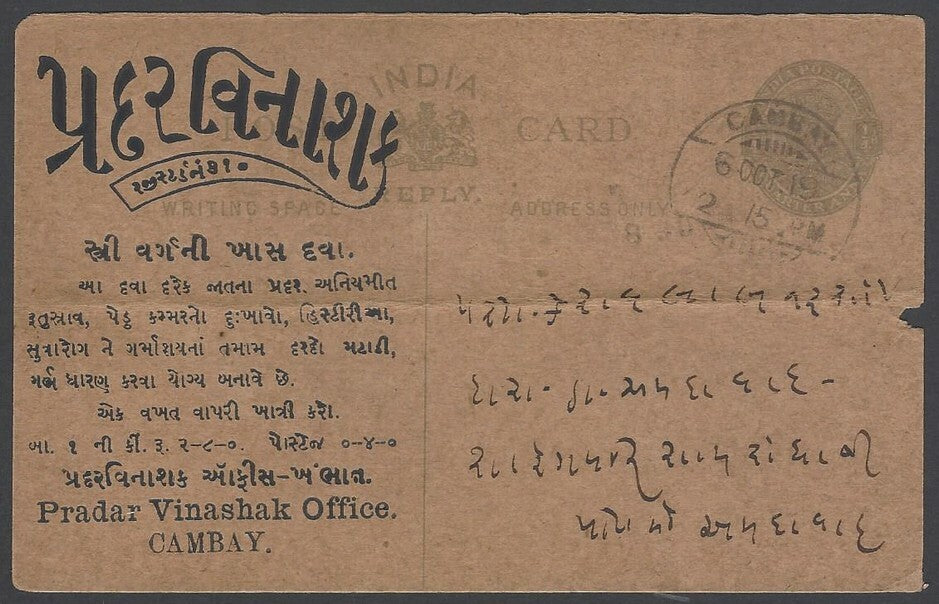 પ્રદરવિનાશક
રજીસ્ટર્ડ નં ૭૧૦
INDIA
POST CARD
REPLY.
WRITING SPACE ADDRESS ONLY
CAMBAY
6 OCT. 19
2 15 PM
સ્ત્રી વર્ગની ખાસ દવા.
આ દવા દરેક જાતના પ્રદર, અનિયમીત
રૂતુસ્રાવ, પેડુ કમ્મરનો દુઃખાવો, હિસ્ટીરીઆ,
સુવારોગ ને ગર્ભાશયનાં તમામ દરદો મટાડી,
ગર્ભ ધારણ કરવા યોગ્ય બનાવે છે.
એક વખત વાપરી ખાત્રી કરો.
બા. ૧ ની કીં. રૂ. ૨-૮-૦. પોસ્ટેજ ૦-૪-૦
પ્રદરવિનાશક ઑફીસ-ખંભાત.
Pradar Vinashak Office.
CAMBAY.
અમદાવાદ
અમદાવાદ